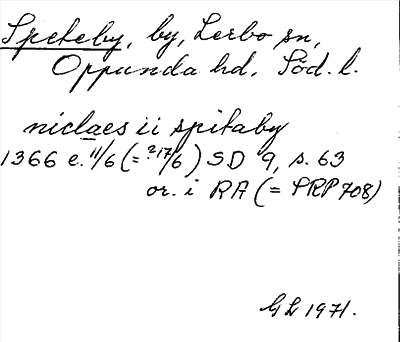 Speteby, by, Lerbo sn,
Oppunda hd, Söd. l.
niclaes ii spitaby
1366 e. 11/6 (= ? 17/6) SD 9, s. 63
or. i RA (= PRP 708)
GL 1971.